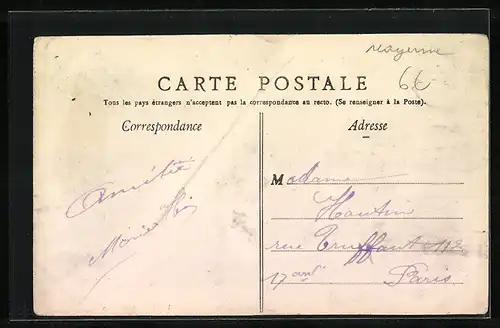 Mayenne
6€
CARTE POSTALE
Tous les pays étrangers n'acceptent pas la correspondance au recto. (Se renseigner à la Poste).
Correspondance
Adresse
Amitié
Marie
Madame
Hautin
rue Truffaut 112
17
Paris